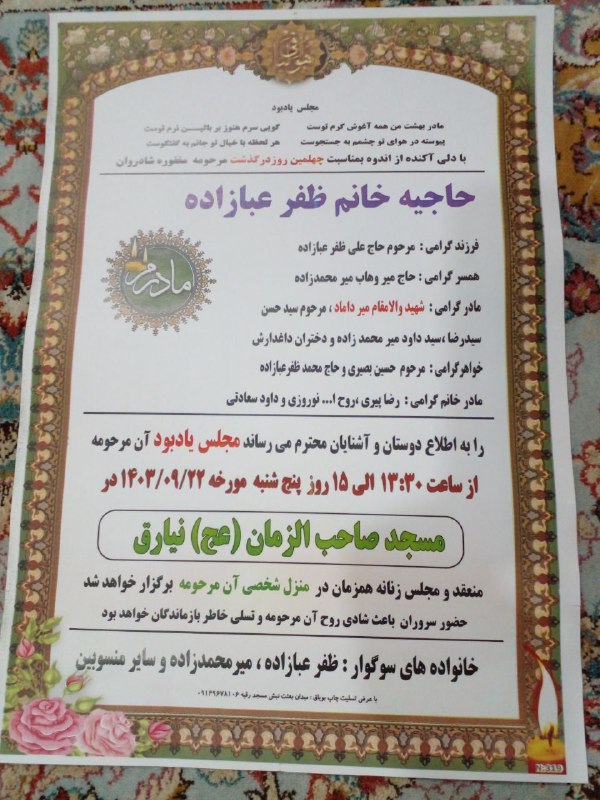 هو الباقی
مجلس یادبود
مادر بهشت من همه آغوش گرم توست گویی سرم هنوز بر بالیـــن نرم توست
پیوسته در هوای تو چشمم به جستجوست هر لحظه با خیال تو جانم به گفتگوست
با دلی آکنده از اندوه بمناسبت چهلمین روز درگذشت مرحومه مغفوره شادروان
حاجیه خانم ظفر عبازاده
مادرم
فرزند گرامی : مرحوم حاج علی ظفر عبازاده
همسر گرامی : حاج میر وهاب میر محمدزاده
مادر گرامی : شهید والامقام میر داماد ، مرحوم سید حسن
سیدرضا ،سید داود میر محمد زاده و دختران داغدارش
خواهرگرامی : مرحوم حسین بصیری و حاج محمد ظفرعبازاده
مادر خانم گرامی : رضا پیری ،روح ا... نوروزی و داود سعادتی
را به اطلاع دوستان و آشنایان محترم می رساند مجلس یادبود آن مرحومه
از ساعت ۱۳:۳۰ الی ۱۵ روز پنج شنبه مورخه ۱۴۰۳/۰۹/۲۲ در
مسجد صاحب الزمان (عج) نیارق
منعقد و مجلس زنانه همزمان در منزل شخصی آن مرحومه برگزار خواهد شد
حضور سروران باعث شادی روح آن مرحومه و تسلی خاطر بازماندگان خواهد بود
خانواده های سوگوار : ظفر عبازاده ، میرمحمدزاده و سایر منسوبین
با عرفی تسلیت چاپ بویاق : میدان بعثت نبش مسجد رقیه ۰۹۱۴۹۶۷۸۱۰۶
N:319